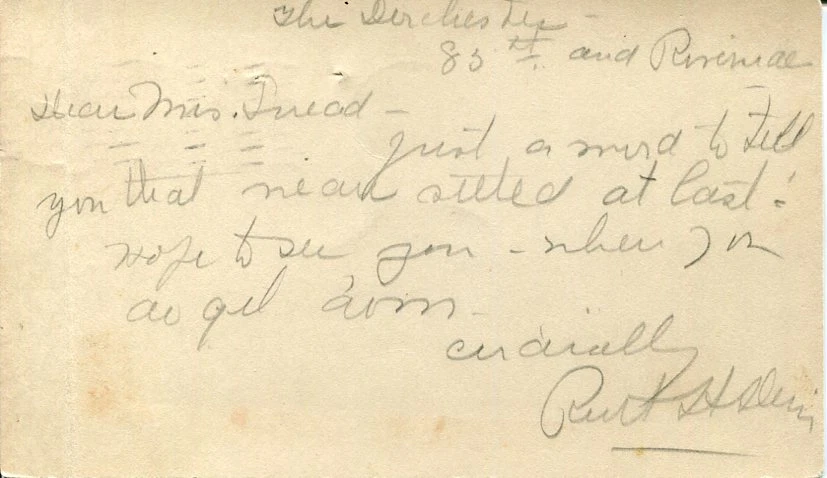 The Dorchester –
85th. and Riverside
Dear Mrs. Snead –
Just a word to tell
you that we are settled at last.
Hope to see you – when you
do get down –
Cordially
Ruth